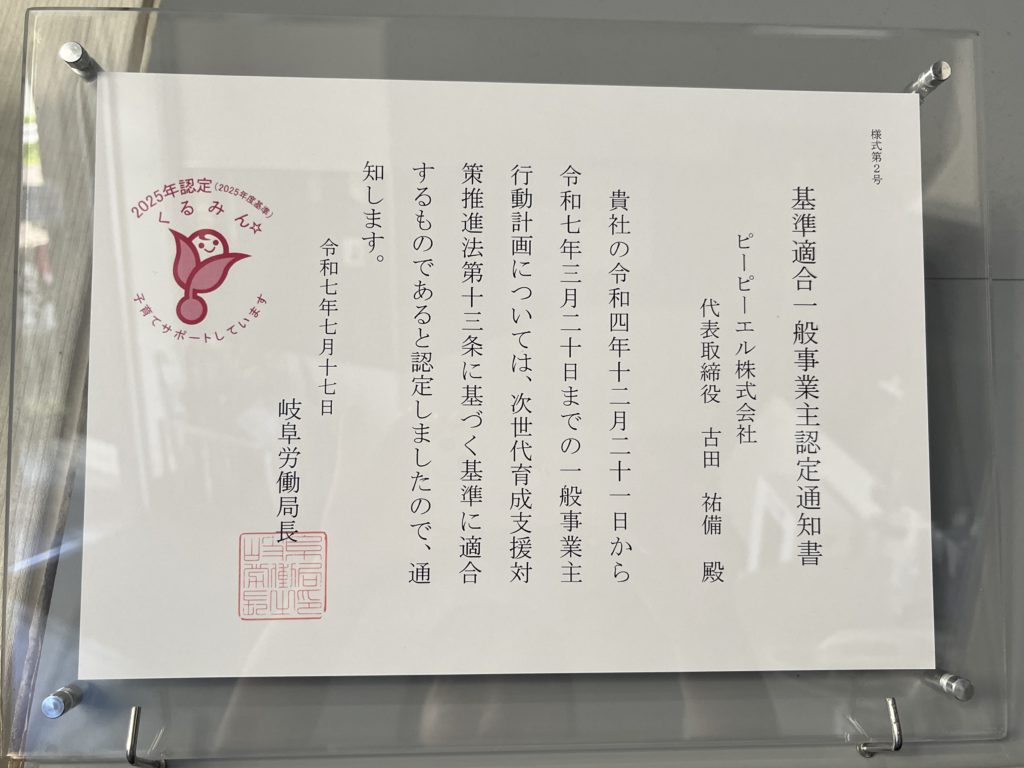 様式第２号
基準適合一般事業主認定通知書
ピーピーエル株式会社
代表取締役　古田　祐備　殿
貴社の令和四年十二月二十一日から
令和七年三月二十日までの一般事業主
行動計画については、次世代育成支援対
策推進法第十三条に基づく基準に適合
するものであると認定しましたので、通
知します。
令和七年七月十七日
岐阜労働局長
2025年認定(2025年度基準)
くるみん☆
子育てサポートしています